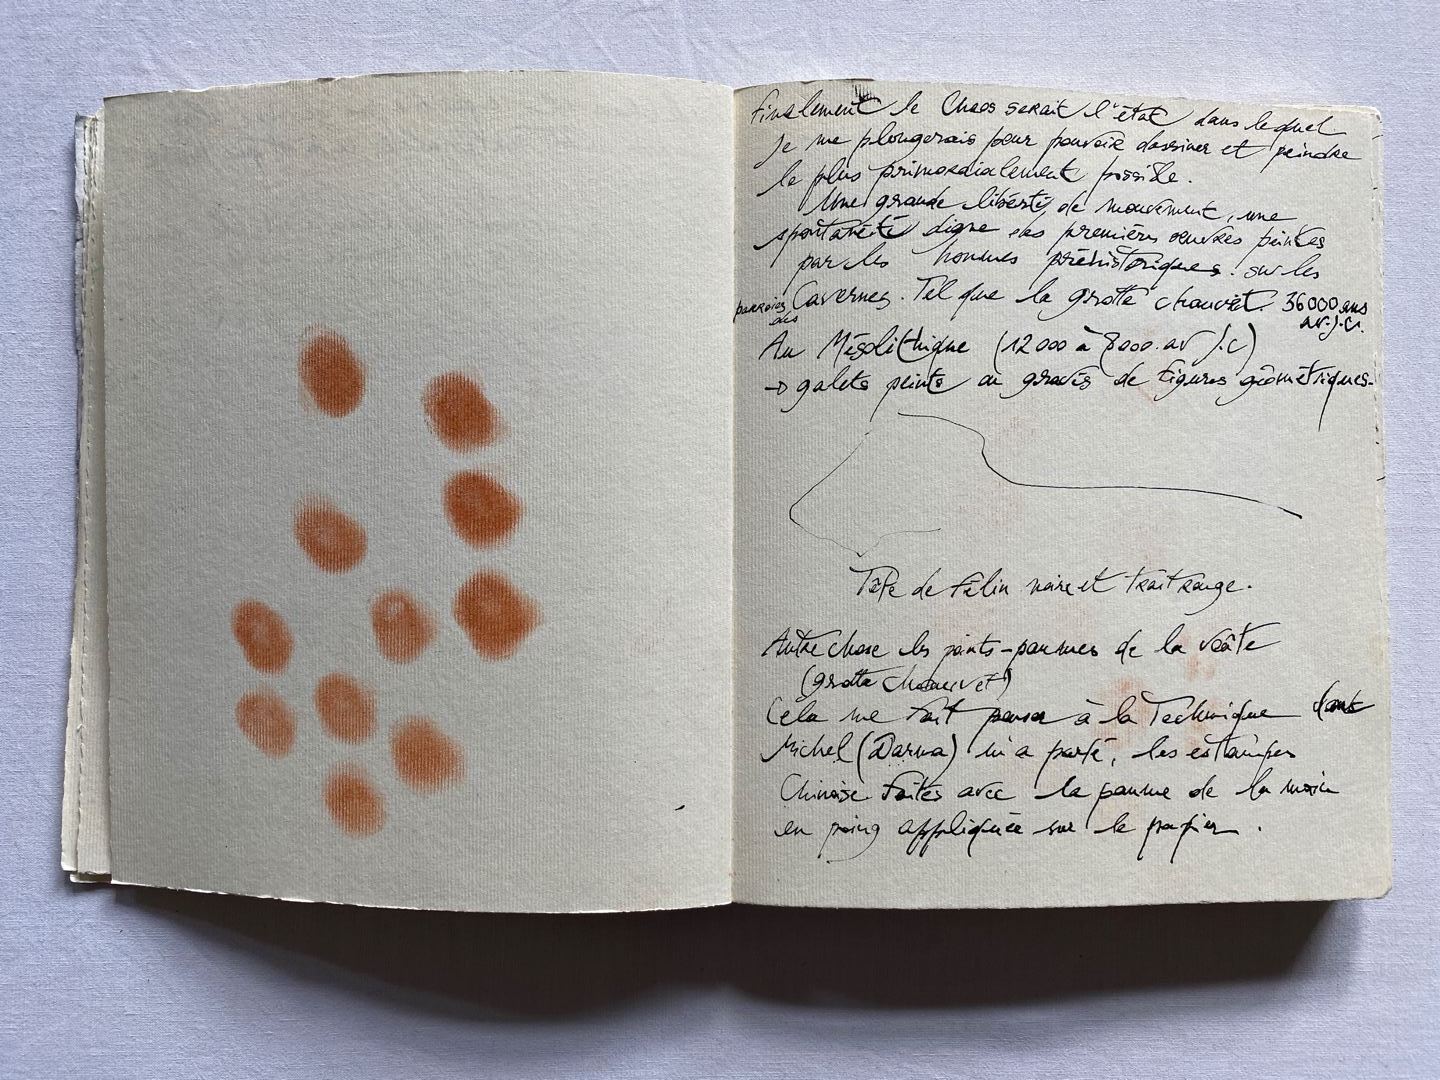 finalement le Chaos serait l'état dans lequel
je me plongerais pour pouvoir dessiner et peindre
le plus primordialement possible.
Une grande liberté de mouvement, une
spontanéité digne des premières oeuvres peintes
par les hommes préhistoriques. sur les
parroies des Cavernes. Tel que la grotte chauvet. 36000 ans
av. J.C.
Au Mésolithique (12000 à 8000 av J.C)
→ galets peints ou gravés de figures géométriques.
Tête de félin noire et trait rouge.
Autre chose les points-paumes de la voûte
(grotte chauvet)
Cela me fait penser à la Technique dont
Michel (Darma) m'a parlé, les estampes
Chinoise faites avec la paume de la main
en poing appliquée sur le papier.